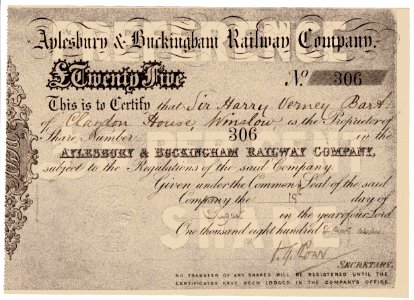 PREFERENCE
Aylesbury & Buckingham Railway Company.
£Twenty Five No. 306
This is to Certify that Sir Harry Verney Bart
of Claydon House, Winslow, is the Proprietor of
Share Number 306 in the
AYLESBURY & BUCKINGHAM RAILWAY COMPANY,
subject to the Regulations of the said Company.
Given under the Common Seal of the said
Company the 18th day of
August in the year of our Lord
One thousand eight hundred &
SHARE
SECRETARY.
NO TRANSFER OF ANY SHARES WILL BE REGISTERED UNTIL THE
CERTIFICATES HAVE BEEN LODGED IN THE COMPANY'S OFFICE.